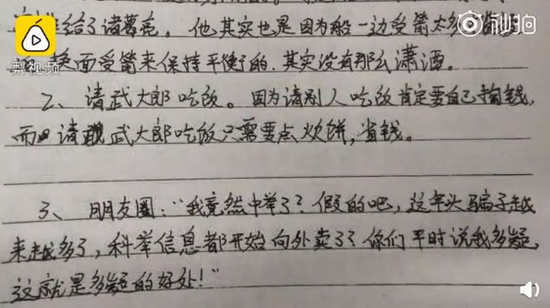 梨视频
秒拍
给了诸葛亮。他其实也是因为船一边受箭太多
换面受箭来保持平衡的,其实没有那么潇洒。
2、请武大郎吃饭。因为请别人吃饭肯定要自己掏钱,
而请武大郎吃饭只需要点炊饼,省钱。
3、朋友圈:“我竟然中举了?假的吧,这年头骗子越
来越多了,科举信息都开始向外卖了?你们平时说我多疑,
这就是多疑的好处!”